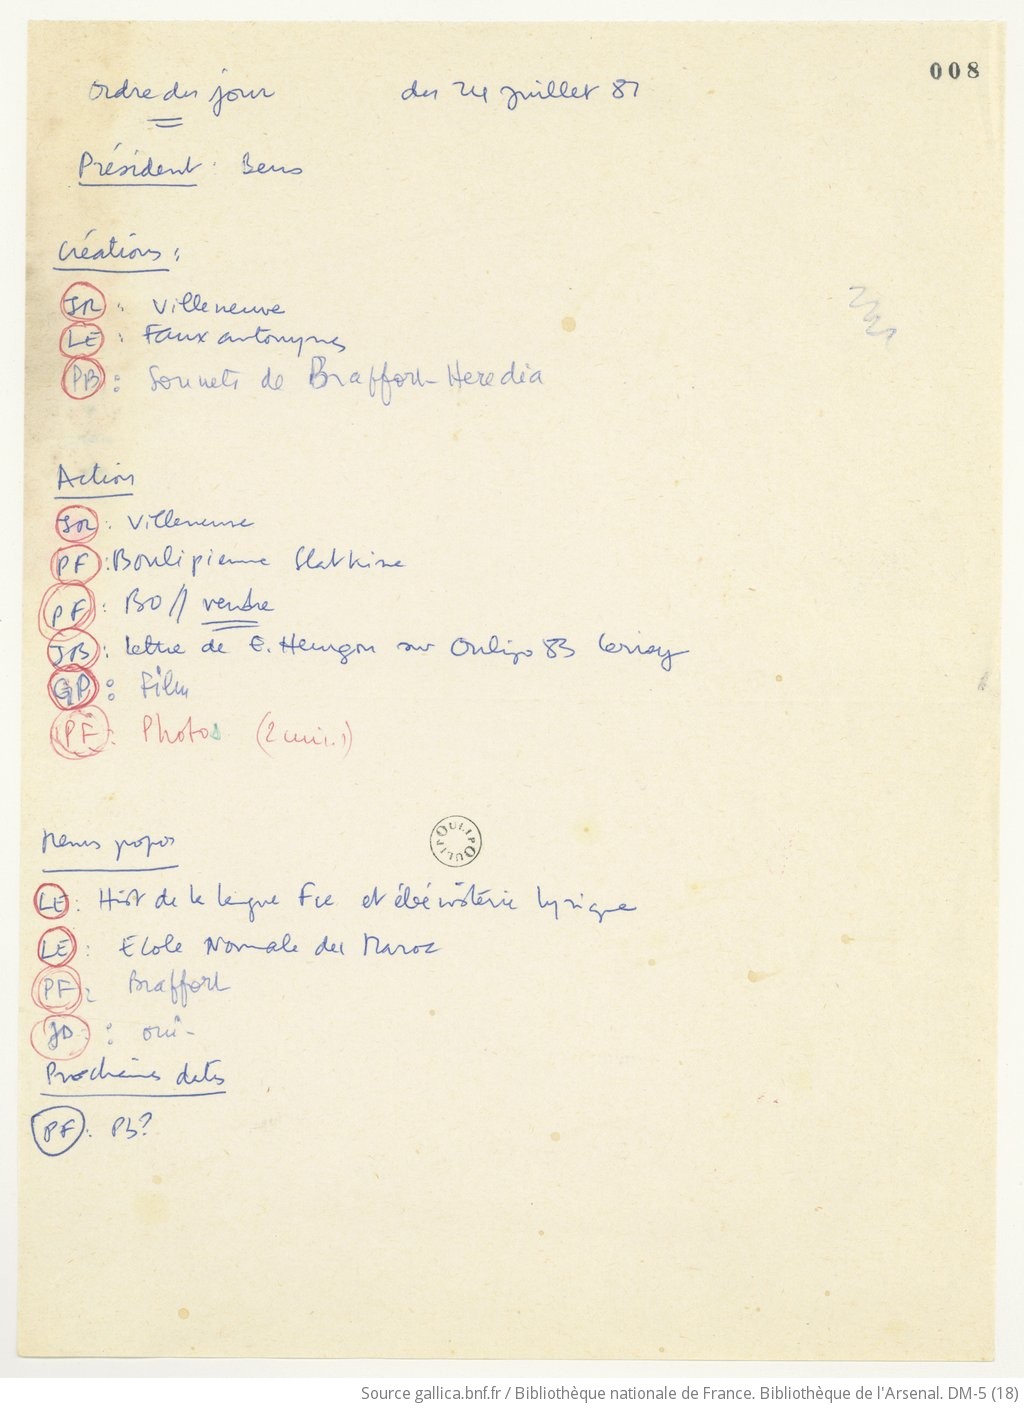 008
Ordre du jour du 24 juillet 81
Président : Bens
Créations :
JR : Villeneuve
LE : Faux antonymes
PB : Sonnets de Braffort-Heredia
Action
JR : Villeneuve
PF : Boulipienne Slatkine
PF : BO // vendre
JB : lettre de E. sur Oulipo 83 Cerisy
GP : Film
PF : Photos (2 min.)
OULIPO OULIPO
Menus propos
LE : Hist de la langue Fse et ébénisterie lyrique
LE : Ecole Normale du Maroc
PF : Braffort
JD : oui -
Prochaines dates
PF : PB?
Source gallica.bnf.fr / Bibliothèque nationale de France. Bibliothèque de l'Arsenal. DM-5 (18)